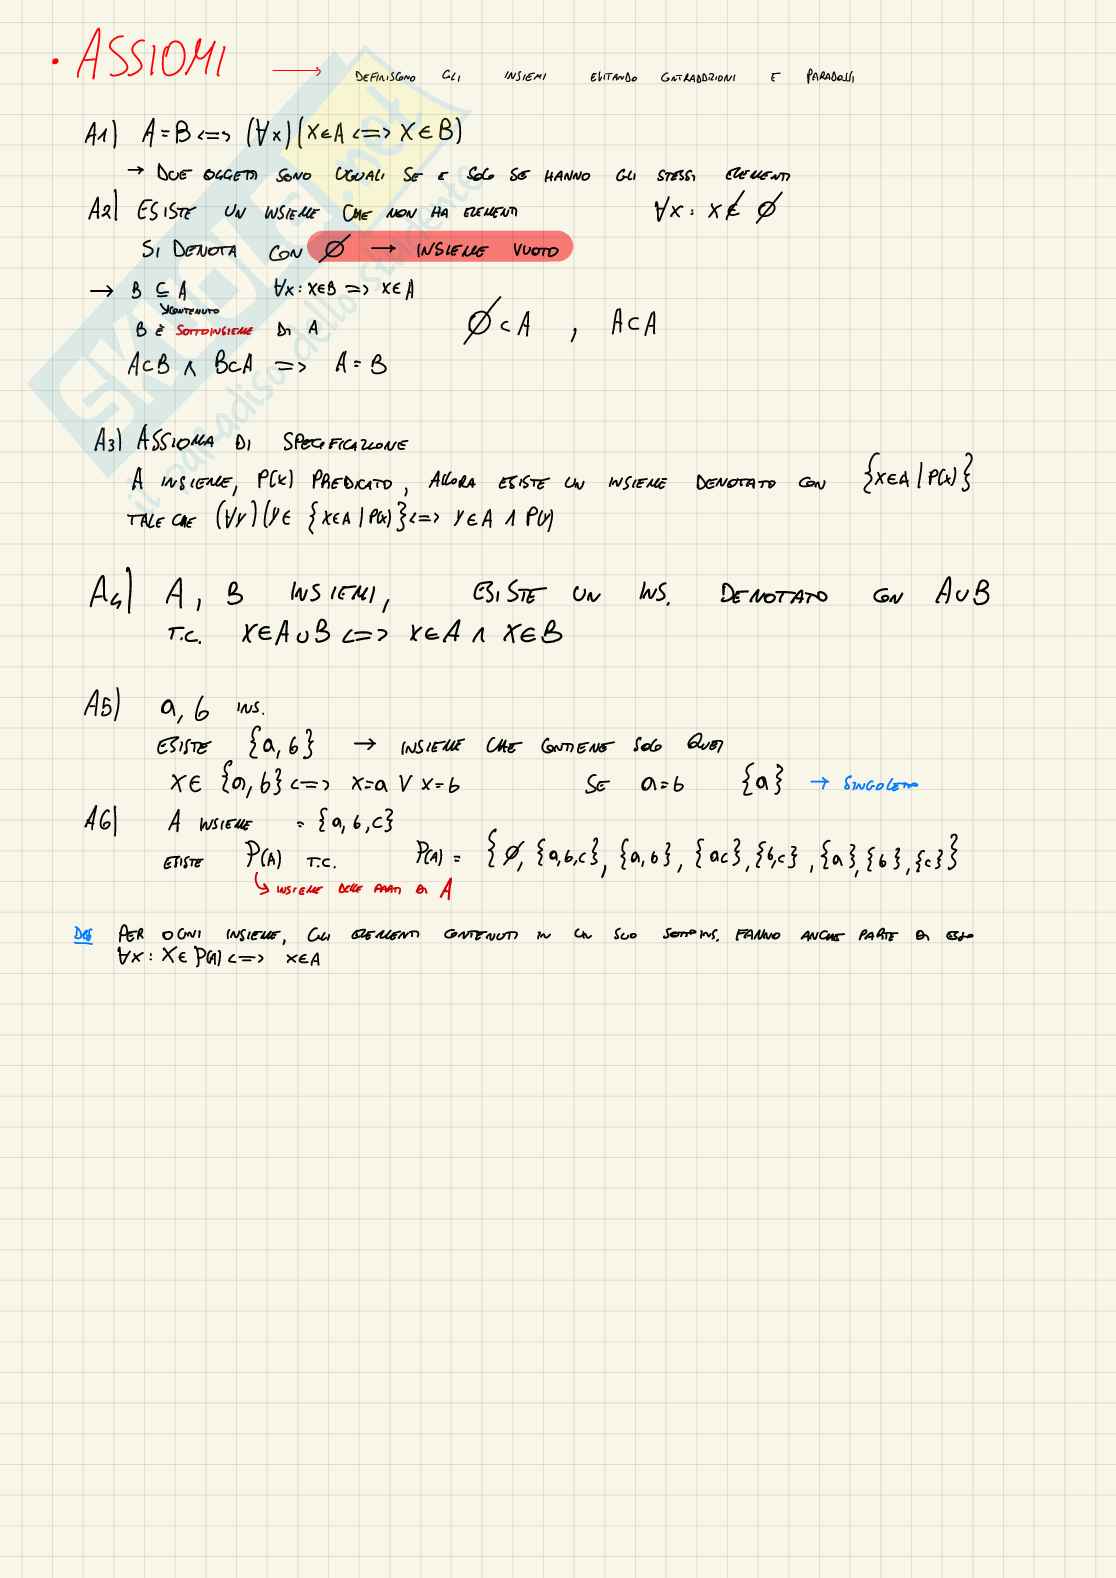 • ASSIOMI → DEFINISCONO GLI INSIEMI EVITANDO CONTRADDIZIONI E PARADOSSI
A1) A = B <=> (∀x)(x∈A <=> x∈B)
→ DUE OGGETTI SONO UGUALI SE E SOLO SE HANNO GLI STESSI ELEMENTI
A2) ESISTE UN INSIEME CHE NON HA ELEMENTI ∀x : x∉ ∅
SI DENOTA CON ∅ → INSIEME VUOTO
→ B ⊆ A ∀x : x∈B => x∈A
CONTENUTO
B È SOTTOINSIEME DI A ∅⊂A , A⊂A
A⊂B ∧ B⊂A => A = B
A3) ASSIOMA DI SPECIFICAZIONE
A INSIEME, P(x) PREDICATO, ALLORA ESISTE UN INSIEME DENOTATO CON {x∈A | P(x)}
TALE CHE (∀y)(y∈ {x∈A | P(x)} <=> y∈A ∧ P(y)
A4) A, B INSIEMI, ESISTE UN INS. DENOTATO CON A∪B
T.C. x∈A∪B <=> x∈A ∧ x∈B
A5) a, b INS.
ESISTE {a, b} → INSIEME CHE CONTIENE SOLO QUEI
x∈ {a, b} <=> x=a ∨ x=b SE a=b {a} → SINGOLETTO
A6) A INSIEME = {a, b, c}
ESISTE P(A) T.C. P(A) = {∅, {a,b,c}, {a,b}, {ac}, {b,c}, {a}, {b}, {c}}
↳ INSIEME DELLE PARTI DI A
PER OGNI INSIEME, GLI ELEMENTI CONTENUTI IN UN SUO SOTTOINS. FANNO ANCHE PARTE DI ESSO
∀x : x∈ P(A) <=> x∈A
SKUOLA.net
il paradiso dello studente